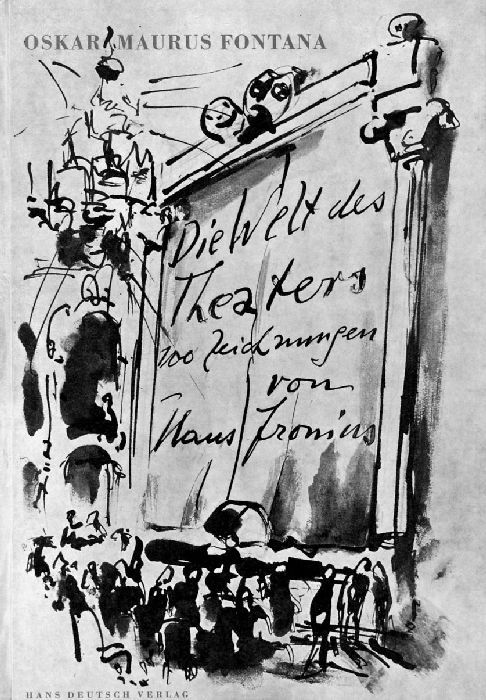 OSKAR MAURUS FONTANA
Die Welt des
Theaters
100 Zeichnungen
von
Hans Fronius
HANS DEUTSCH VERLAG